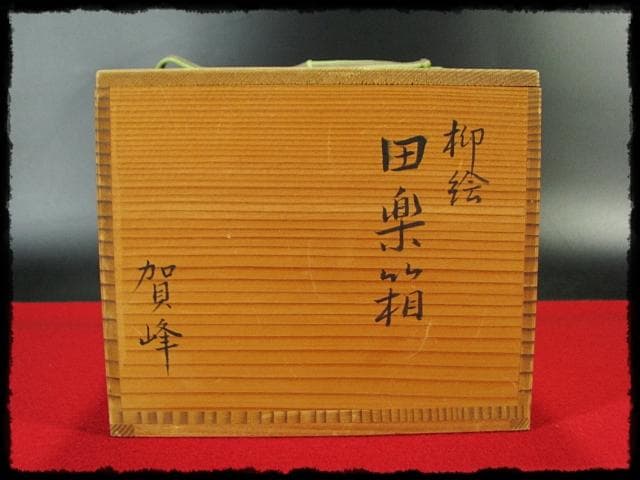 柳絵
田楽箱
賀峰